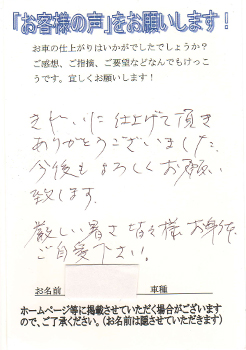 「お客様の声」をお願いします！
お車の仕上がりはいかがでしたでしょうか？
ご感想、ご指摘、ご要望などなんでもけっこ
うです。宜しくお願いします！
きれいに仕上げて頂き
ありがとうございました。
今後もよろしくお願い
致します。
厳しい暑さ 皆々様 お身体
ご自愛下さい。
お名前 車種
ホームページ等に掲載させていただく場合がございます
ので、ご了承ください。（お名前は隠させていただきます）